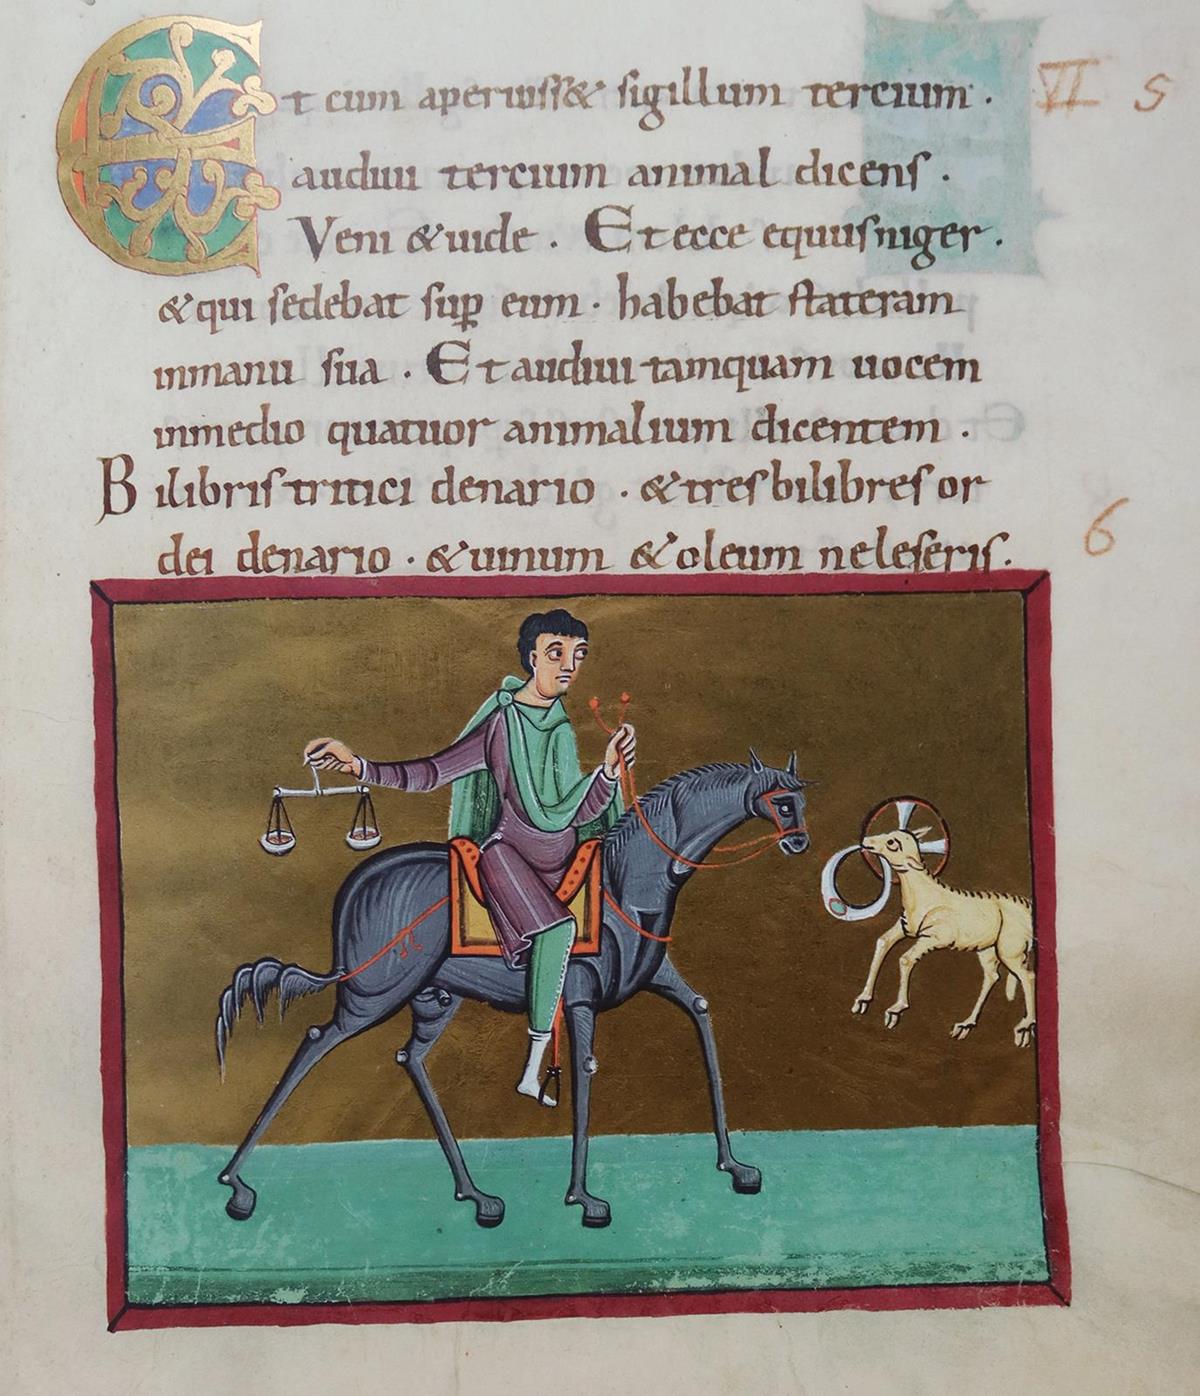 Et cum aperuiss& sigillum tercium . VI 5
audiui tercium animal dicens .
Veni & uide . Et ecce equus niger .
& qui sedebat sup̲ eum . habebat stateram
inmanu sua . Et audiui tamquam uocem
inmedio quatuor animalium dicentem .
Bilibris tritici denario . & tres bilibres or
6
dei denario . & uinum & oleum neleseris .